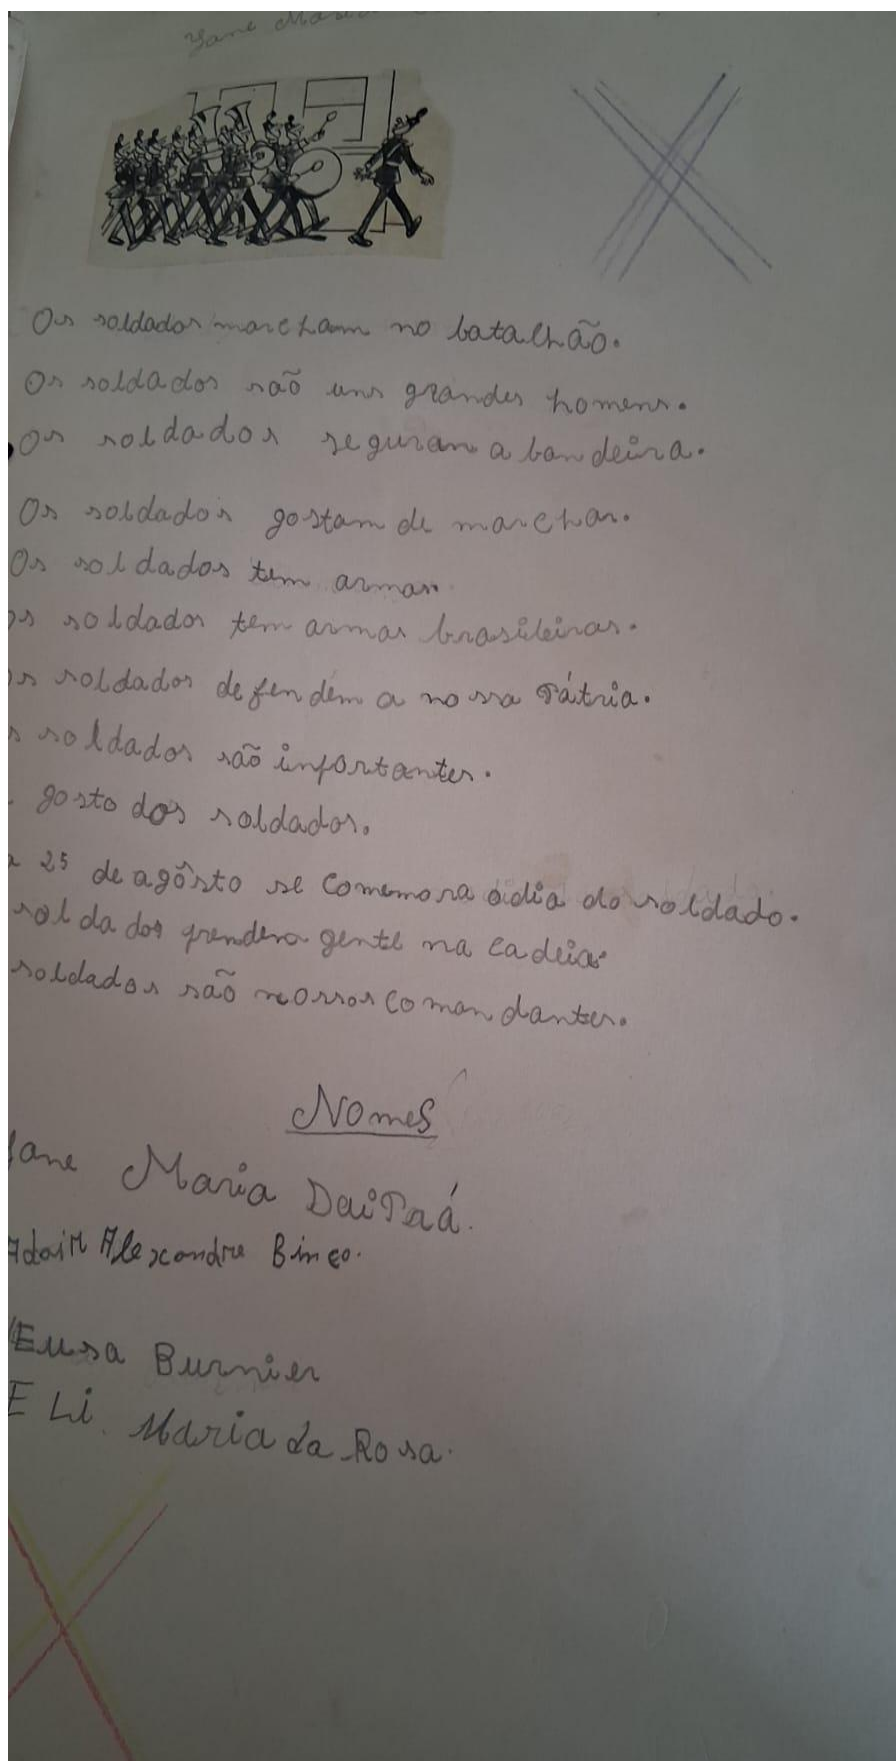 Jane Maria
Os soldados marcham no batalhão.
Os soldados são uns grandes homens.
Os soldados seguram a bandeira.
Os soldados gostam de marchar.
Os soldados tem armas.
os soldados tem armas brasileiras.
os soldados defendem a nossa Pátria.
s soldados são inportantes.
gosto dos soldados.
a 25 de agôsto se comemora o dia do soldado.
soldados prendem gente na cadeia.
soldados são nossos comandantes.
Nomes
Jane Maria DaiPaá.
Adair Alexandre Binco.
Eusa Burnier
Eli. Maria da Rosa.